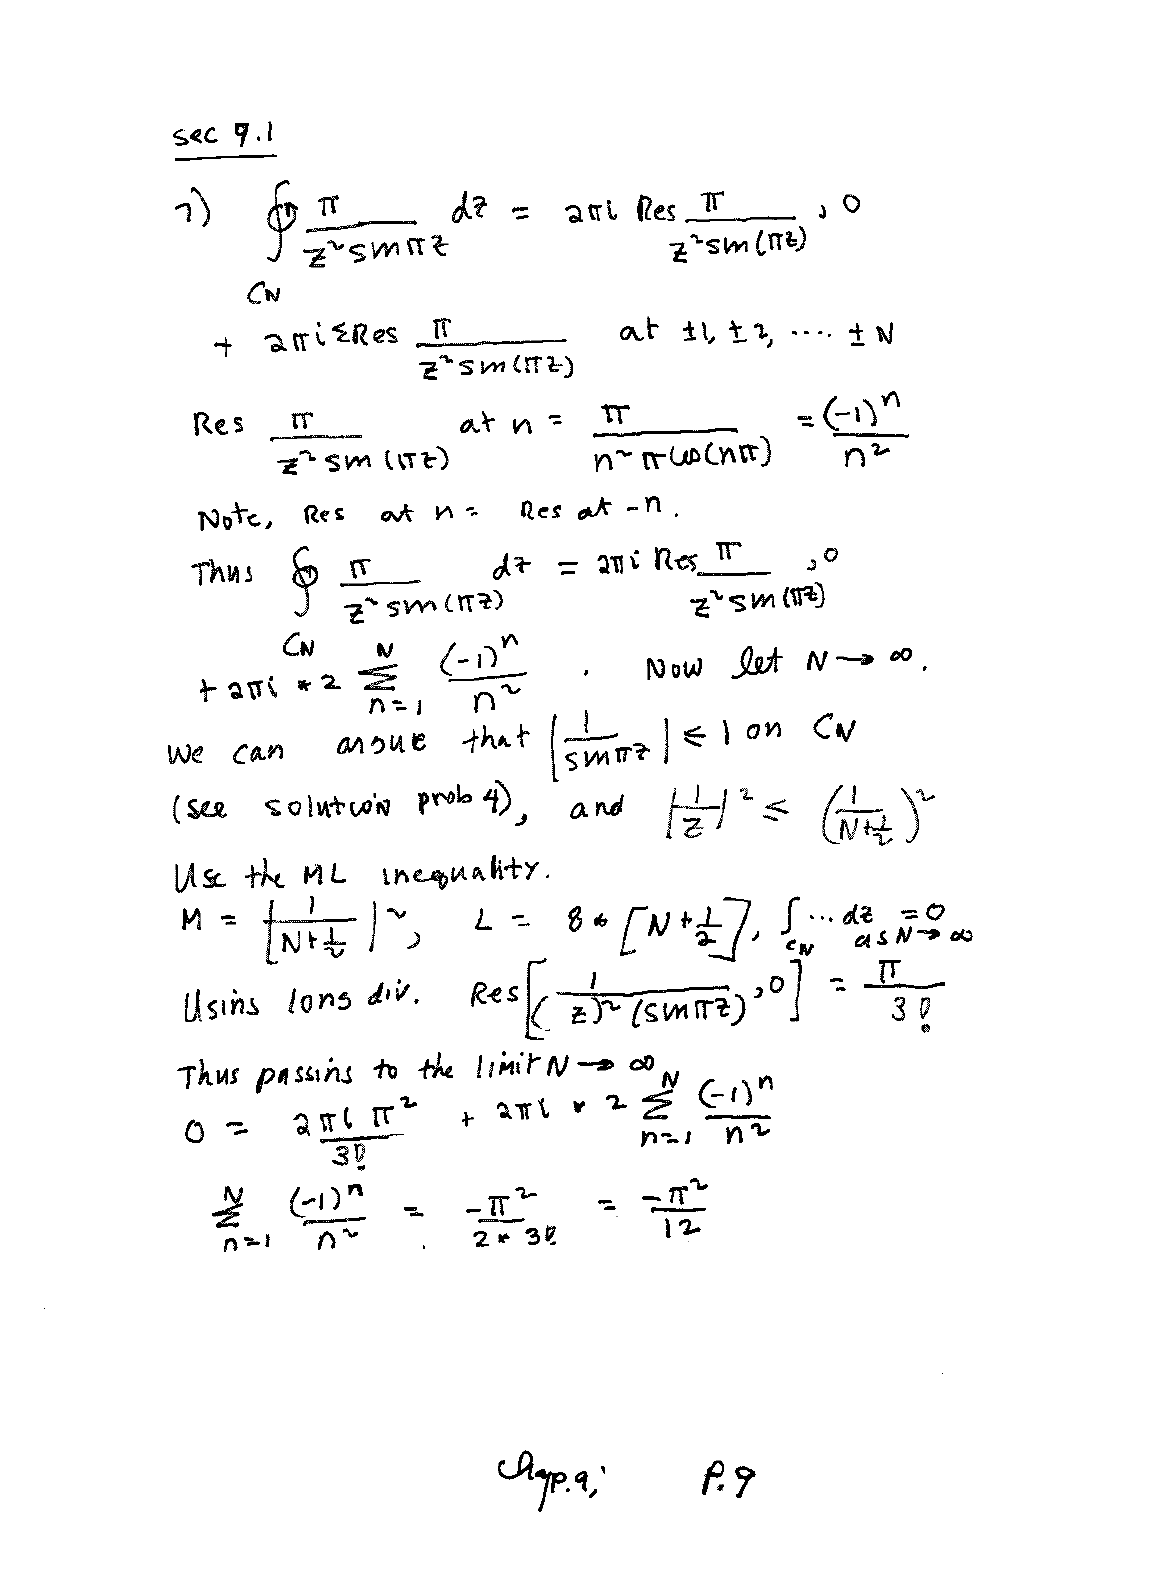 sec 9.1
7) ∮ π / z² sin πz dz = 2πi Res π / z² sin(πz) , 0
C_N
+ 2πi ΣRes π / z² sin(πz) at ±1, ±2, .... ±N
Res π / z² sin(πz) at n = π / n² π cos(nπ) = (-1)ⁿ / n²
Note, Res at n = Res at -n.
Thus ∮ π / z² sin(πz) dz = 2πi Res π / z² sin(πz) , 0
C_N
+ 2πi * 2 Σ_{n=1}^{N} (-1)ⁿ / n² . Now let N → ∞.
We can argue that |1 / sin πz| ≤ 1 on C_N
(see solution prob 4), and |1/z|² ≤ (1 / N+½)²
Use the ML inequality.
M = |1 / N+½|², L = 8 * [N + ½], ∫_{C_N} ... dz = 0 as N → ∞
Using long div. Res[1 / (z)² (sin πz) , 0] = π / 3!
Thus passing to the limit N → ∞
0 = 2πi π² / 3! + 2πi * 2 Σ_{n=1}^{N} (-1)ⁿ / n²
Σ_{n=1}^{N} (-1)ⁿ / n² = -π² / 2 * 3! = -π² / 12
Chap. 9, P. 9